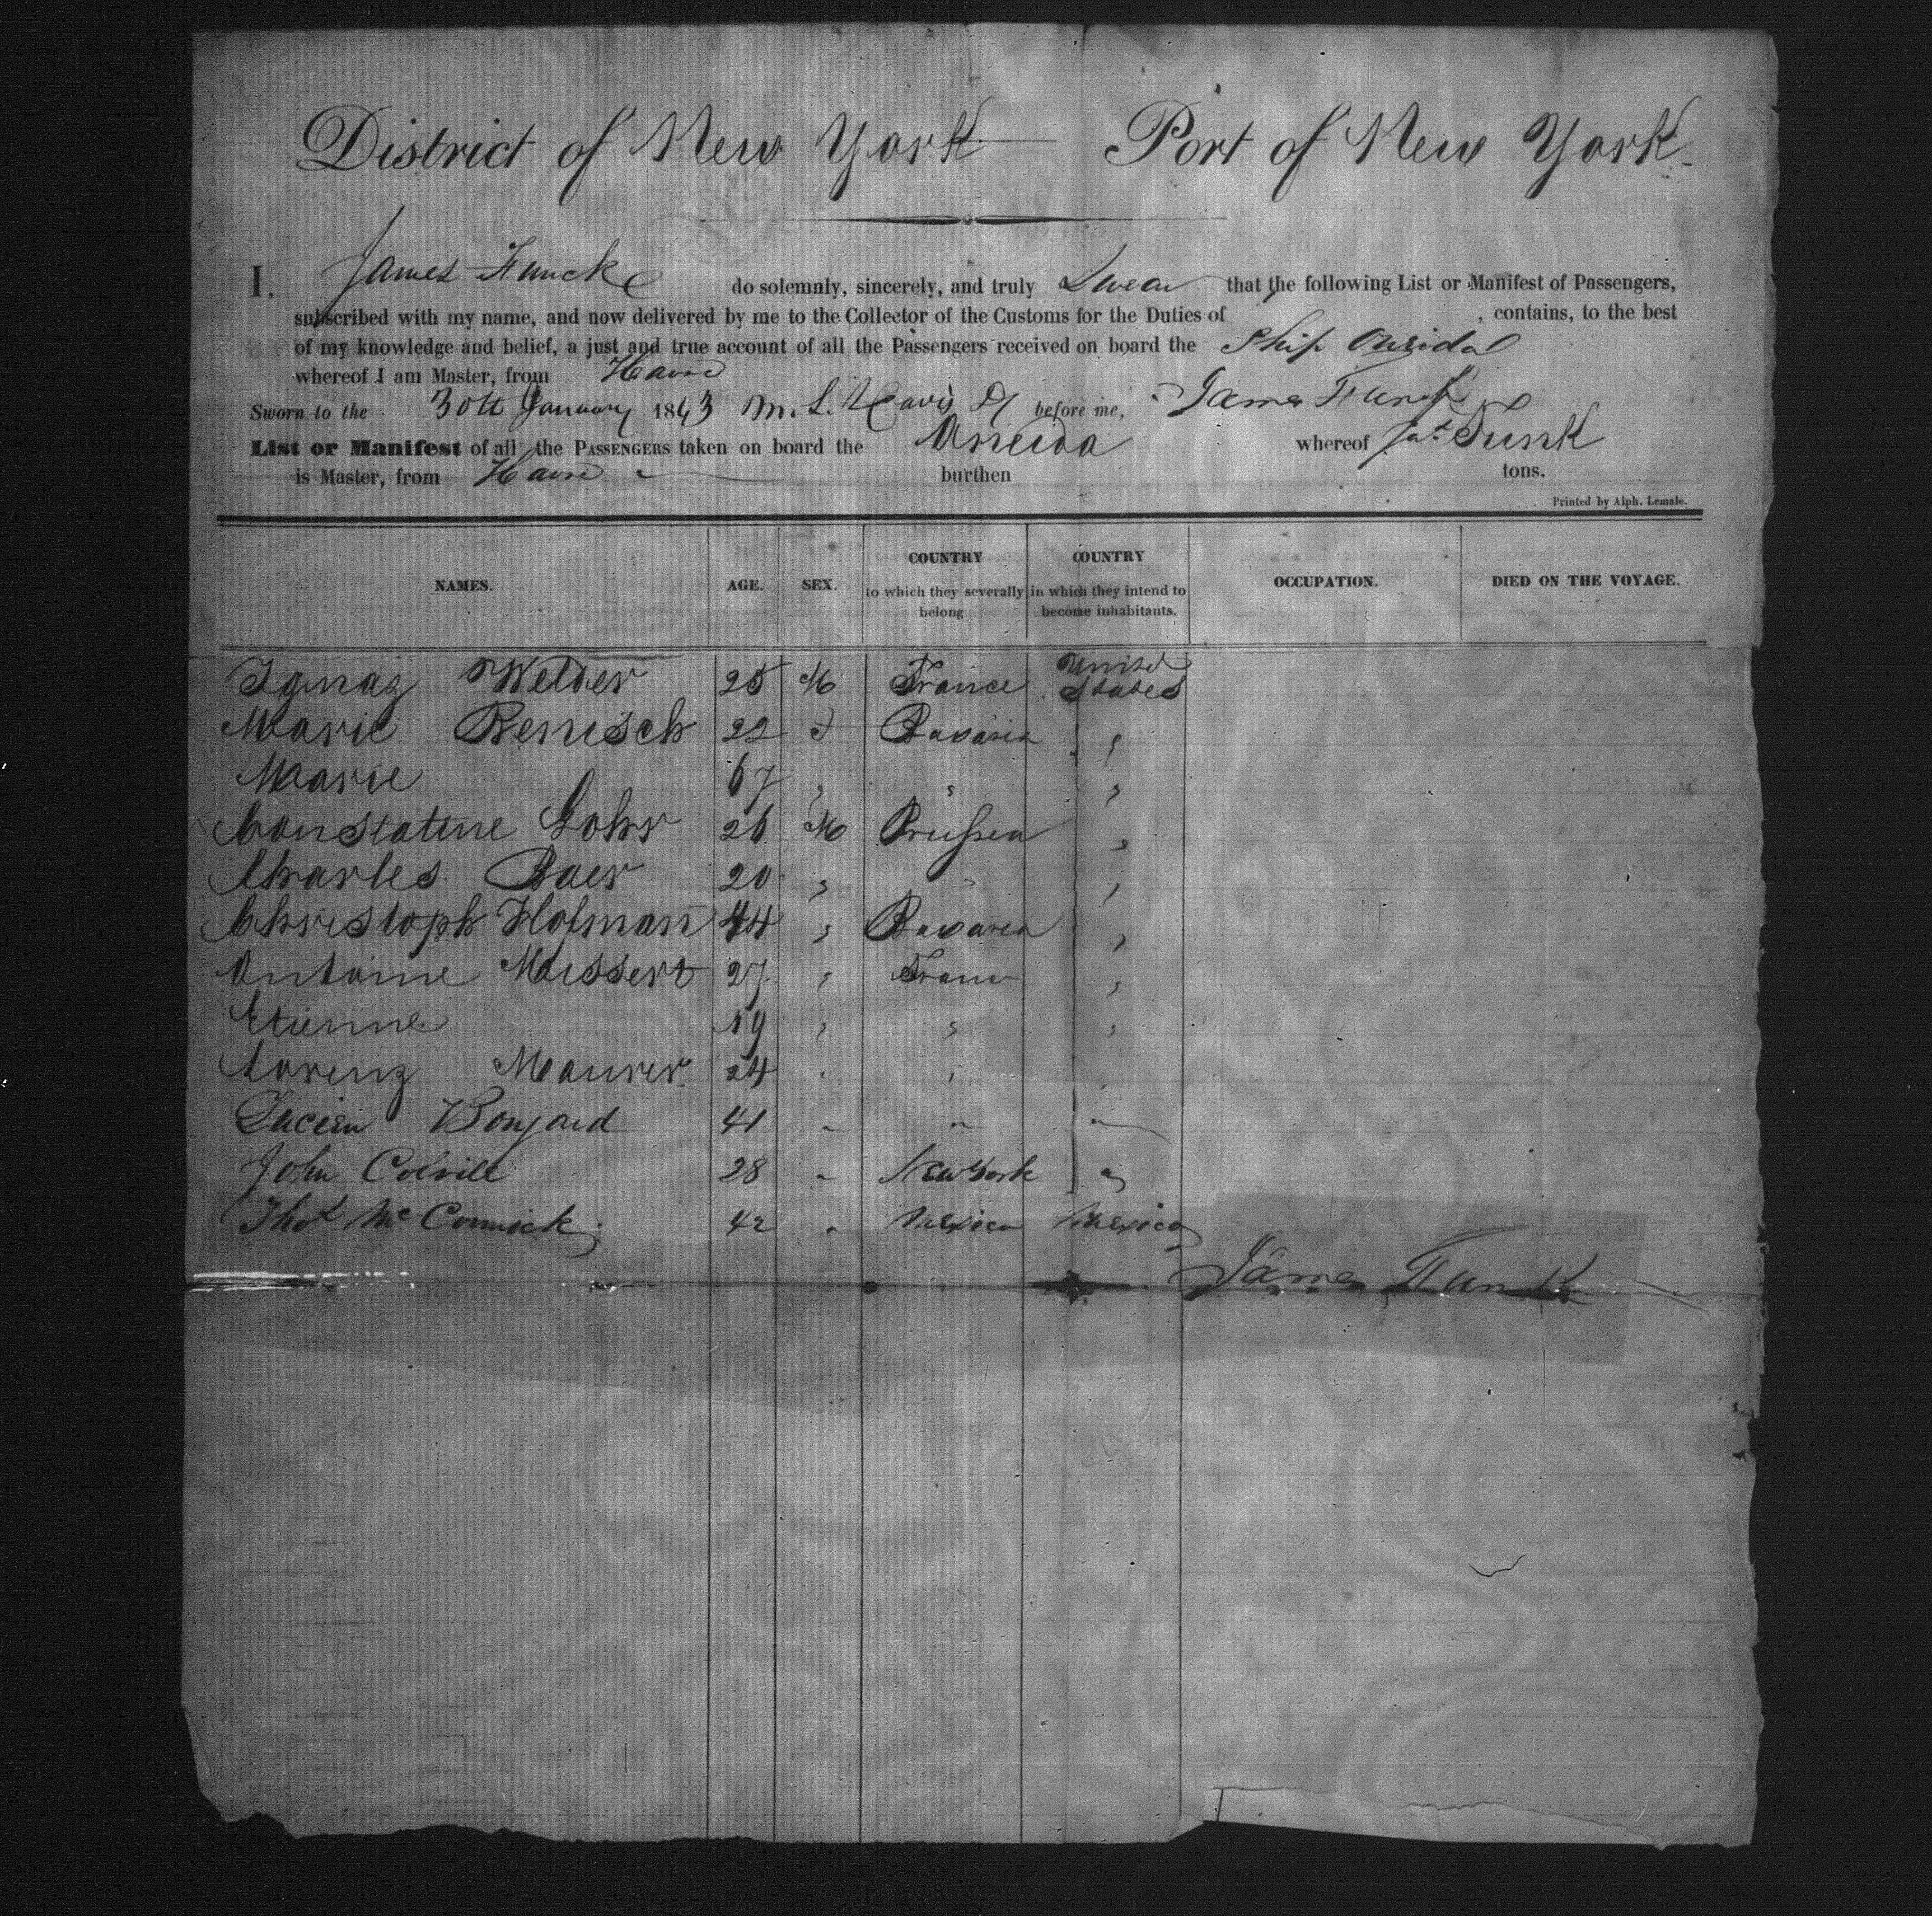 District of New York Port of New York
I, James Funck do solemnly, sincerely, and truly Swear that the following List or Manifest of Passengers,
subscribed with my name, and now delivered by me to the Collector of the Customs for the Duties of , contains, to the best
of my knowledge and belief, a just and true account of all the Passengers received on board the Ship Oneida
whereof I am Master, from Havre
Sworn to the 30th January 1843 M. L. Davis before me, James Funck
List or Manifest of all the PASSENGERS taken on board the Oneida whereof Jas Funk
is Master, from Havre burthen tons.
Printed by Alph. Lemale.
NAMES. AGE. SEX. COUNTRY to which they severally belong COUNTRY in which they intend to become inhabitants. OCCUPATION. DIED ON THE VOYAGE.
Ignaz Welder 25 M France United States
Marie Benisch 22 f Bavaria "
Marie 67 " " "
Constatine Gohr 26 M Prussia "
Charles Baer 20 " " "
Christoph Hofman 44 " Bavaria "
Antoine Mussert 27 " France "
Etienne 19 " " "
Lorenz Maurer 24 " "
Lucien Bonjard 41 " " "
John Colvill 28 " New York "
Thos McCormick 42 " Mexico Mexico
James Funck